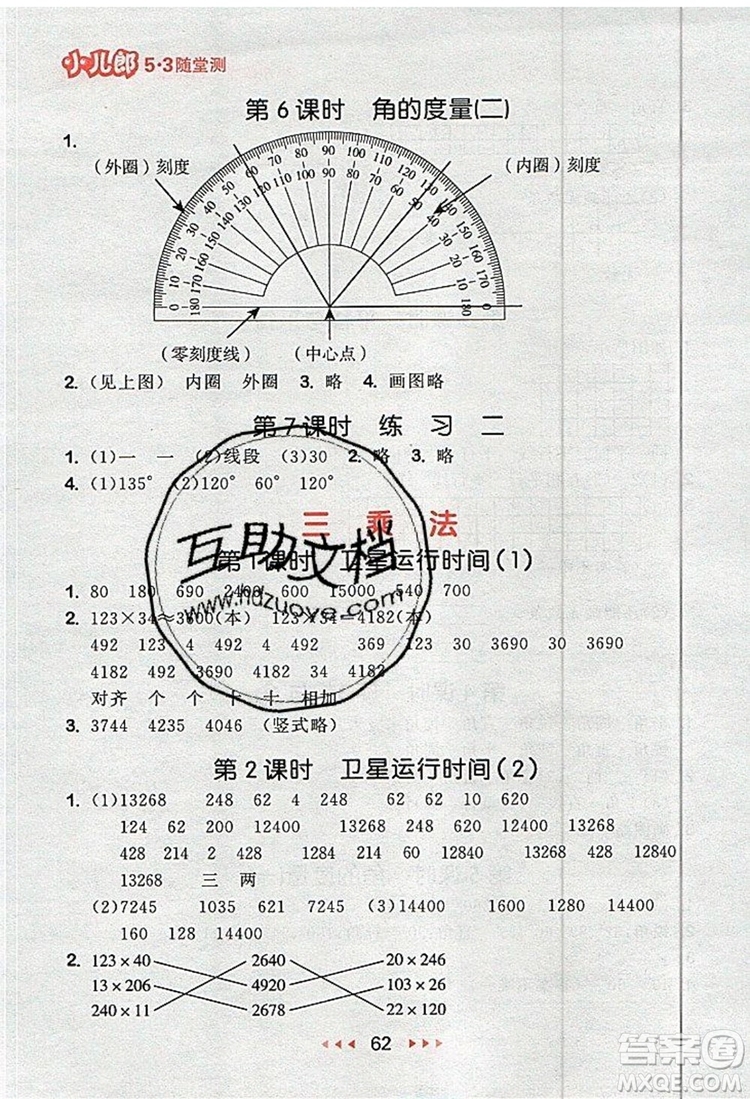 小儿郎 5·3随堂测
第6课时 角的度量(二)
1.
(外圈)刻度 (内圈)刻度
0 10 20 30 40 50 60 70 80 90 100 110 120 130 140 150 160 170 180
180 170 160 150 140 130 120 110 100 90 80 70 60 50 40 30 20 10 0
(零刻度线) (中心点)
2. (见上图) 内圈 外圈 3. 略 4. 画图略
第7课时 练习二
1. (1)一 一 (2)线段 (3)30 2. 略 3. 略
4. (1)135° (2)120° 60° 120°
三 乘法
第1课时 卫星运行时间(1)
1. 80 180 690 2400 600 15000 540 700
2. 123×34≈3600(本) 123×34=4182(本)
492 123 4 492 4 492 369 123 30 3690 30 3690
4182 492 3690 4182 34 4182
对齐 个 个 十 十 相加
3. 3744 4235 4046 (竖式略)
第2课时 卫星运行时间(2)
1. (1)13268 248 62 4 248 62 10 620
124 62 200 12400 13268 248 620 12400 13268
428 214 2 428 1284 214 6 1284 428 1284
13268 三 两
(2)7245 1035 621 7245 (3)14400 1600 1280 14400
160 128 14400
2. 123×40 2640 20×246
13×206 4920 103×26
240×11 2678 22×120
62
互助文档
www.hdzuoye.com
答案圈
MXQE.COM